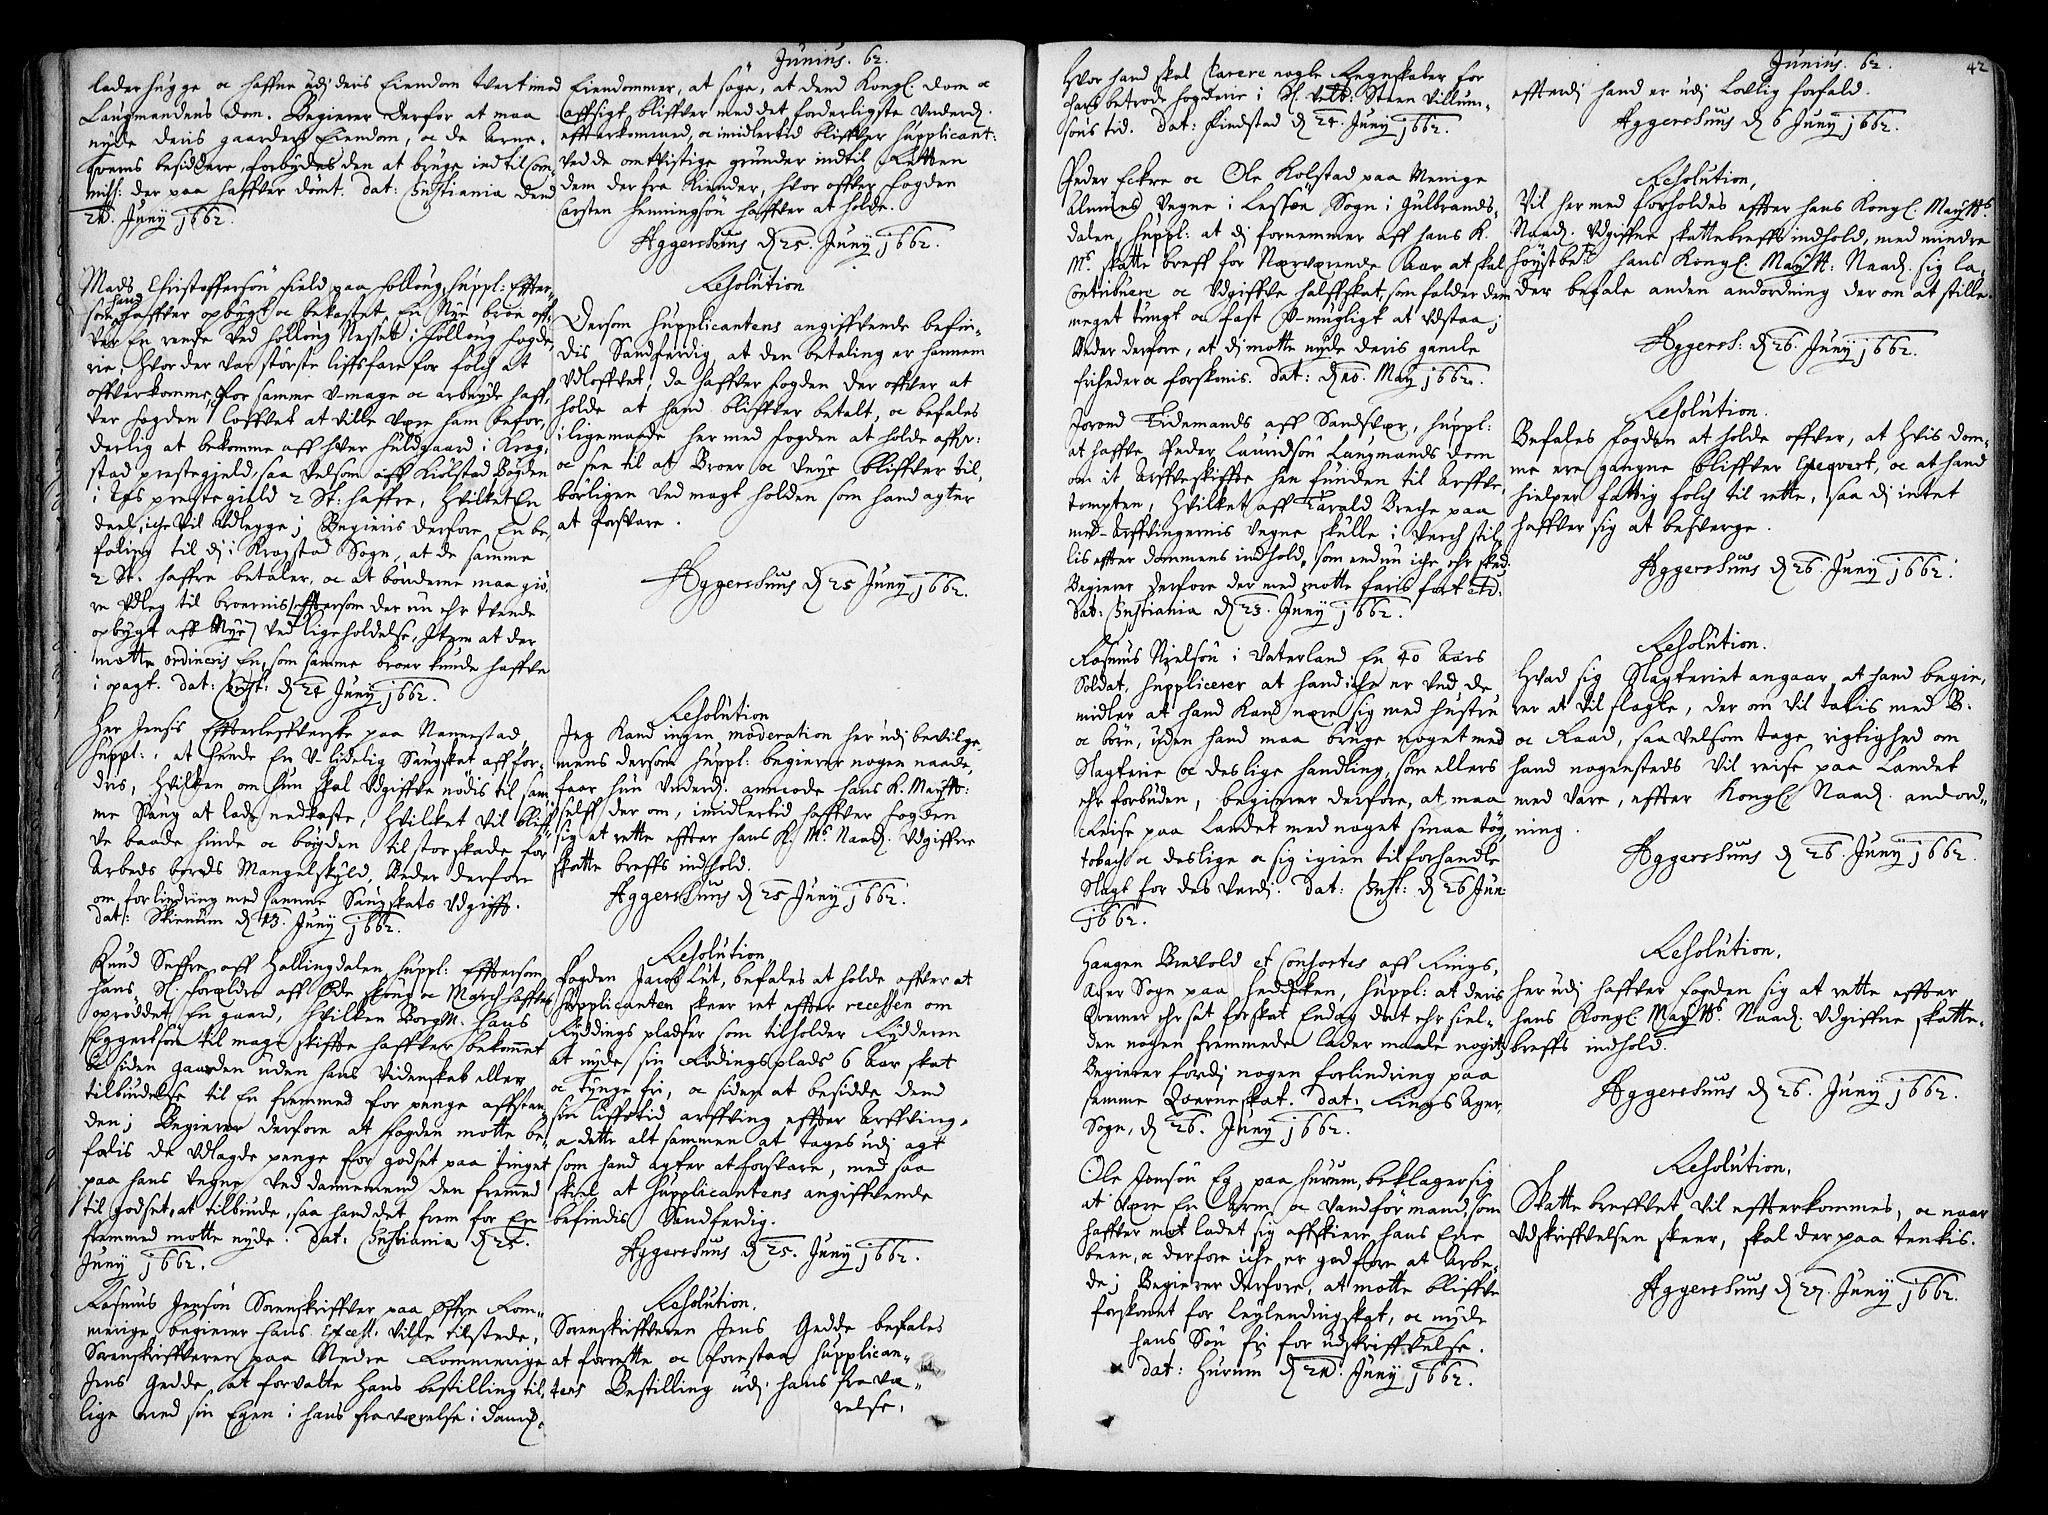 Junius. 62.
lader hugge oc haffne udj deris Eiendom tvertimod
Laugmandens dom. Begierer derfor at maa
nyde deris gaarders Eiendom, oc de
besiddere, forbydes den at bruge indtil Com-
miss: der paa haffver dömt. dat: Christiania den
24. Juny 1662.
Mads Christoffersön field paa follong, suppl: Effter-
som hand haffver opbygt oc bekostet En Nye broe off-
ver En rense ved hollong Nesset i follong fogde-
rie, hvor der var störste liffsfare for folch at
offverkomme, for samme U-mage oc arbeyde haff-
ver fogden loffvet at ville være ham befor-
derlig at bekomme aff hver fuldgaard i Krog-
stad prestegield, saa velsom aff Kirkstad Bögden
i Aas prestegield 2 St: haffre, hvilket En
deel iche vil udlegge; Begieris derfore, En be-
faling til dj i Krogstad Sogn, at de samme
2 St. haffre betaler, oc at bönderne maa giö-
re udleg til broernis (eftersom der nu ehr tvende
opbygt aff Nye) ved lige holdelse, Item at der
motte ordineris En, som samme broer kunde haffve
i agt. dat: Christ: d 24 Juny 1662.
Her Jensis Effterleffverske paa Nannestad
suppl:, at hende En U-lidelig Saugskat affor-
dris, hvilken om hun skal udgiffve nödis til sam-
me Saug at lade nedkaste, hvilket vil bliff-
ve baade hinde oc böygden til stor skade for
Arbeds breds Mangelskyld, Beder derfore
om forlindring med samme Saugskats udgifft.
Dat: Skiensum d 13. Juny 1662.
Knud Seffre aff Hallingdalen suppl: Efftersom
hans Sl. forældre aff Öde skoug oc March haffver
oprÿddet En gaard, hvilken Borgm. Hans
Eggertsön til mage skiffte haffver bekommet
oc siden gaarden uden hans videnskab eller
tilbudelse til En fremmed for penge affstan-
den; Begierer derfore at fogden motte be-
falis de udlagde penge for godset paa tinget
paa hans vegne ved dannemend den fremmed
til godset, at tilbiude, saa hand det frem for En
fremmed motte nyde. Dat: Christiania d 24.
Juny 1662.
Rasmus Jensön Sorenskriffver paa öffre Rom-
merige, begierer hans Excell. ville tilstede,
Sorenskriffveren paa Nedre Rommerige
Jens Gedde at forvalte hans bestilling til-
lige med sin Egen i hans fraværelse i danm-
Eiendommer, at söge, at dend Kongl. dom oc
affsigt bliffver med det forderligste Underd.
effterkommed, oc imidlertid bliffver supplicant:
ved de omtvistige grunder indtil Retten
dem der fra kiender, hvor offver fogden
Carsten Henningsön haffver at holde.
Aggershuus d 25. Juny 1662.
Resolution
Dersom supplicantens angiffvende befin-
dis Sandferdig, at den betaling er hannem
udloffvet, da haffver fogden der offver at
holde at hand bliffver betalt, oc befales
iligemaade her med fogden at holde offver:
oc see til at Broer oc veye bliffver til-
börligen ved magt holden som hand agter
at forsvare.
Aggershuus d 25 Juny 1662.
Resolution
Jeg kand ingen moderation her udj bevilge,
mens dersom suppl: begierer nogen naade,
faar hun underd. anmode hans K. Maytt:
self der om, imidlertid haffver fogden
sig at rette effter hans K. Ms. Naad. Udgiffne
skatte breffs indhold.
Aggershuus d 25 Juny 1662.
Resolution
Fogden Jacob Lut, befales at holde offver at
supplicanten skeer ret effter recessen om
Rydings pladser som tilholder Rydderen
at nyde sin Rÿdingsplads 6 Aar skat
oc tynge fri, oc siden at besidde dend
sin liffstid arffving effter Arffving-
oc dette alt sammen at tages udj agt
som hand agter at forsvare, med saa
skiel, at supplicantens angiffvende
befindis Sandferdig.
Aggershuus d 25. Juny 1662.
Resolution.
Sorenskriffveren Jens Gedde befales
at forrette oc forestaa supplican-
tens Bestilling udj hans fravæ-
relse.
Junius. 62. 42
Hvor hand skal klarere nogle Regnskaber for
hans betrode fogderie i Sl. velb: Steen Villum-
söns tid. Dat: Findstad d 24. Juny 1662.
Peder Eckre oc Ole Kolstad paa Menige
Almues vegne i Lessöe Sogn i Gulbrands-
dalen, suppl: at dj fornemmer aff hans K.
Ms. skatte breff for Nærværende Aar at skal
contribuere oc udgiffve halffskat, som falder dem
meget tungt oc fast U-mugligt at udstaa;
Beder derfore, at dj motte nyde deris gamle
friheder oc forskonis. Dat: d 10. May 1662.
Jorond Tidemands aff Sandsver, suppl:
at haffve Peder Lauridsön Laugmands dom
om it Arffveskiffte hen funden til Arffve-
tompten, hvilket aff Harald Breche paa
med-Arffvingernis vegne skulle i Verch stil-
lis effter dommens indhold, som endnu iche ehr sked.
Begierer derfore der med motte faris fort etc.
Dat: Christiania d 23. Juny 1662.
Rasmus Nielsön i Vaterland En 40 Aars
Soldat, supplicerer at hand iche er ved de
midler at hand kand nære sig med hustru
oc börn, uden hand maa bruge noget med
Slagterie oc deslige handling, som ellers
ehr forbuden, begierer derfore, at maa
Reise paa Landet med noget smaa töy,
tobach oc deslige oc sig igien tilforhandle
Slagt for des verdj. dat: Christ: d 26 Jun:
1662.
Haagen Brevold et Consortes aff Rings-
Ager Sogn paa Hedemken, suppl: at deris
Qverner ehr sat for skat Endog det ehr siel-
den nogen fremmede lader maale nogit;
Begierer fordj nogen forlindring paa
samme Qverneskat. Dat: Rings Ager
Sogn, d 26. Juny 1662.
Ole Jensön Eg paa Hurum, beklager sig
at være En Arm oc Vanför mand, som
haffver mot ladet sig affskiere hans Ene
been, oc derfore iche er god fore at Arbe-
de; Begierer derfore, at motte bliffve
forskonet for Leylendingskat, oc nyde
hans Sön fri for udskriffvelse.
dat: Hurum d 24. Juny 1662.
efterdj hand er udj Lovlig forfald.
Aggershuus d 6 Juny 1662.
Resolution,
Vil her med forholdes effter hans Kongl. Maytts.
Naad. Udgiffne skattebreffs indhold, med mindre
höystbete hans Kongl. Maytt: Naad. sig la-
der befale anden andordning der om at stille.
Aggersh: d 26. Juny 1662.
Resolution.
Befales fogden at holde offver, at hvis dom-
me ere gangne bliffver Exeqvert, oc at hand
hielper fattig folch til rette, saa dj intet
haffver sig at besverge.
Aggershuus d 26. Juny 1662.
Resolution.
Hvad sig Slagteriet angaar at hand begie-
rer at vil slagte, der om vil talis med B.
oc Raad, saa velsom tage rigtighed om
hand nogensteds vil reise paa Landet
med vare, effter Kongl. Naad. andord-
ning.
Aggershuus d 26. Juny 1662.
Resolution.
Her udj haffver fogden sig at rette effter
hans Kongl. Maytts. Naad. Udgiffne skatte-
breffs indhold.
Aggershuus d 26. Juny 1662.
Resolution.
Skatte breffvet vil effterkommes, oc naar
Udskriffvelsen skeer, skal der paa tenkis.
Aggershuus d 27. Juny 1662.